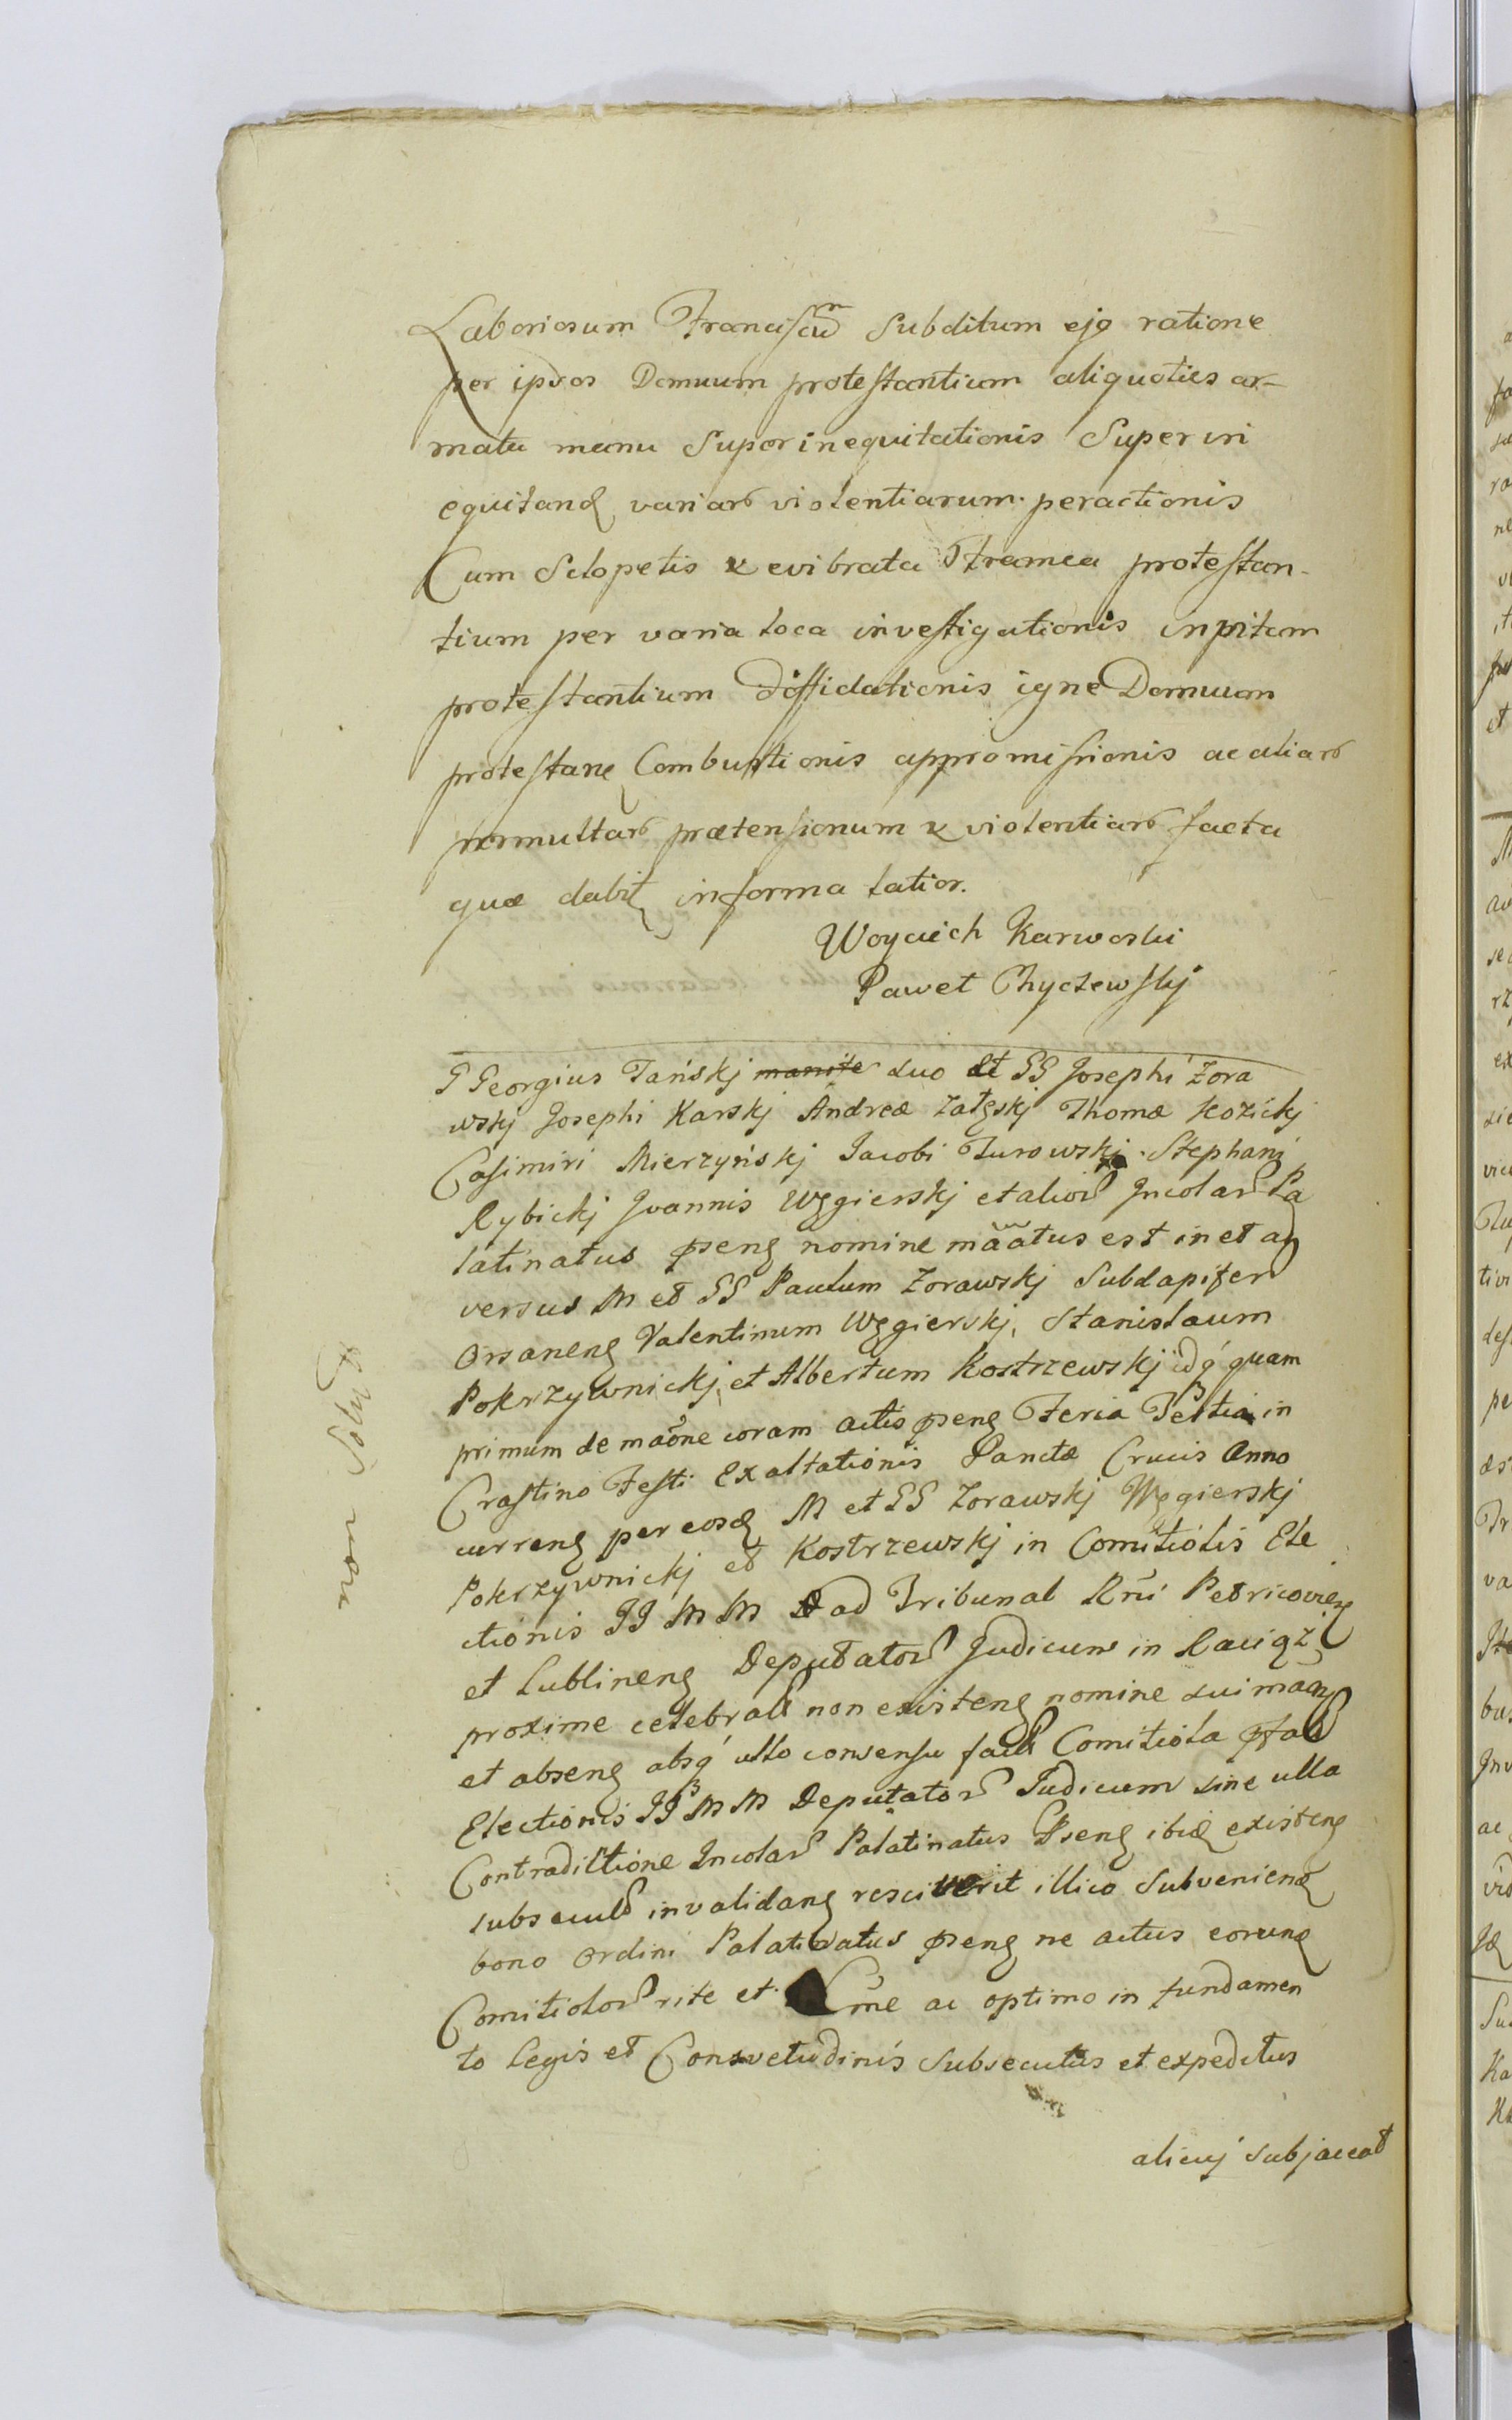 Laboriosum Franciscum Subditum ejo ratione
per ipsos Domuum protestantium aliquoties ar-
mata manu Superinequitationis Superin
equitand variar violentiarum peractionis
Cum Sclopetis & evibrata Framea protestan-
tium per varia loca investigationis in vitam
protestantium diffidationis igne Domuum
protestan Combustionis appromissionis ac aliar
permultar prætensionum & violentiar facta
quæ dabit informa latior.
Woyciech Karwoski
Paweł Chyczewskj
G Georgius Tańskj manife suo et GG Josephi Zora
wskj Josephi Karskj Andreæ Załęskj Thomæ Kozickj
Casimiri Mierzyńskj Jacobi Turowskj Stephani
Rybickj Joannis Węgierskj et alior Incolar Pa
latinatus psen nomine maatus est in et ad
versus M et GG Paulum Zorawskj Subdapifer
Orsanen Valentinum Węgierskj, Stanislaum
Pokrzywnickj et Albertum Kostrzewskj idq quam
primum de maone coram actis psen Feria Tertia in
Crastino Festi Exaltationis Sanctæ Crucis Anno
curren per eosd M et GG Zorawskj Węgierskj
Pokrzywnickj et Kostrzewskj in Comitiolis Ele
ctionis JJ M M ad Tribunal Rni Petricovien
et Lublinen Deputator Judicum in Raciąz
proxime celebrat non existen nomine sui maan
et absen absq ullo consensu facit Comitiola pfat
Electionis JJ M M Deputator Judicum sine ulla
Contradictione Incolar Palatinatus Psen ibid existen
subsecut invalidan resciverit illico Subveniend
bono Ordini Palatinatus psen ne actus eorund
Comitiolor rite et Lme ac optimo in fundamen
to Legis et Consvetudinis Subsecutus et expeditus
alicuj subjaceat
non Solut